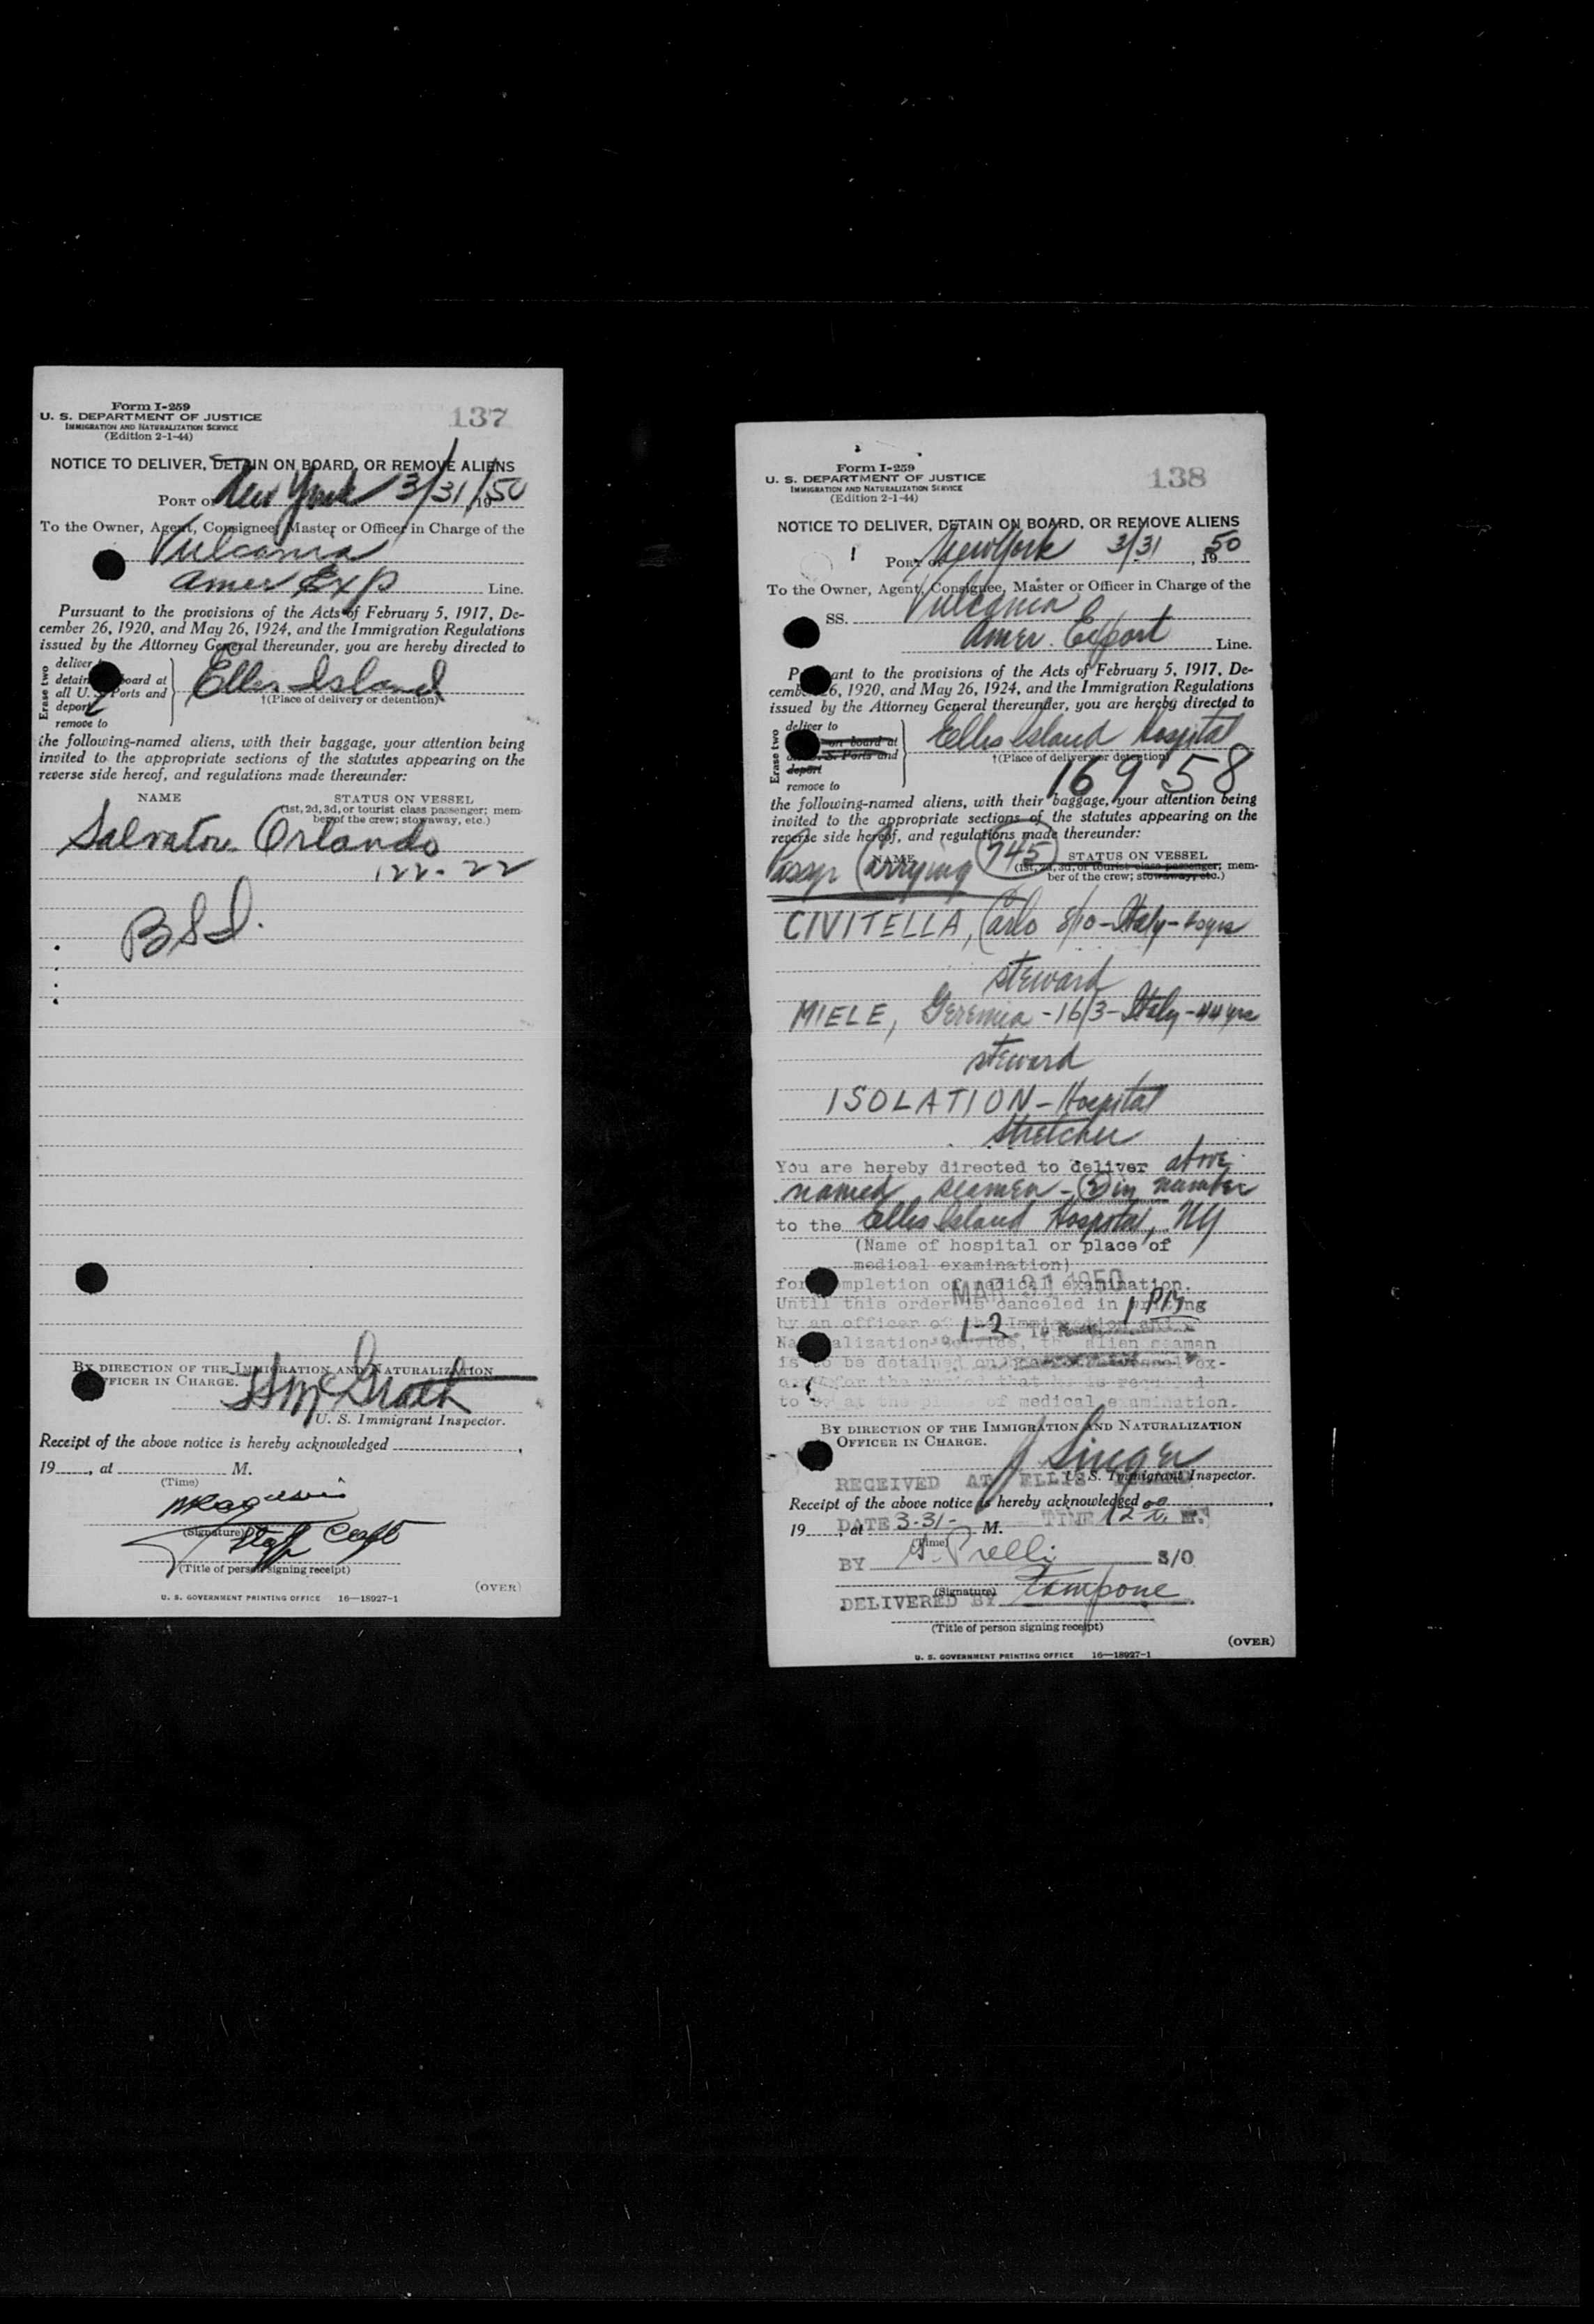 Form I-259
U. S. DEPARTMENT OF JUSTICE
IMMIGRATION AND NATURALIZATION SERVICE
(Edition 2-1-44)
137
NOTICE TO DELIVER, DETAIN ON BOARD, OR REMOVE ALIENS
PORT OF New York 3/31/1950
To the Owner, Agent, Consignee, Master or Officer in Charge of the
Vulcania
Amer Exp Line.
Pursuant to the provisions of the Acts of February 5, 1917, De-
cember 26, 1920, and May 26, 1924, and the Immigration Regulations
issued by the Attorney General thereunder, you are hereby directed to
Erase two
deliver
detain board at
all U. S. Ports and
deport
remove to
Ellis Island
†(Place of delivery or detention)
the following-named aliens, with their baggage, your attention being
invited to the appropriate sections of the statutes appearing on the
reverse side hereof, and regulations made thereunder:
NAME STATUS ON VESSEL
(1st, 2d, 3d, or tourist class passenger; mem-
ber of the crew; stowaway, etc.)
Salvatore Orlando
122-22
BSI.
BY DIRECTION OF THE IMMIGRATION AND NATURALIZATION
OFFICER IN CHARGE.
H McGrath
U. S. Immigrant Inspector.
Receipt of the above notice is hereby acknowledged
19 , at M.
(Time)
(Signature)
(Title of person signing receipt)
(OVER)
U. S. GOVERNMENT PRINTING OFFICE 16—18927-1
Form I-259
U. S. DEPARTMENT OF JUSTICE
IMMIGRATION AND NATURALIZATION SERVICE
(Edition 2-1-44)
138
NOTICE TO DELIVER, DETAIN ON BOARD, OR REMOVE ALIENS
PORT OF New York 3/31, 1950
To the Owner, Agent, Consignee, Master or Officer in Charge of the
SS. Vulcania
Amer. Export Line.
Pursuant to the provisions of the Acts of February 5, 1917, De-
cember 26, 1920, and May 26, 1924, and the Immigration Regulations
issued by the Attorney General thereunder, you are hereby directed to
Erase two
deliver to
on board at
U. S. Ports and
deport
remove to
Ellis Island Hospital
†(Place of delivery or detention)
16958
the following-named aliens, with their baggage, your attention being
invited to the appropriate sections of the statutes appearing on the
reverse side hereof, and regulations made thereunder:
Passgr Carrying 745
NAME STATUS ON VESSEL
(1st, 2d, 3d, or tourist class passenger; mem-
ber of the crew; stowaway, etc.)
CIVITELLA, Carlo 8/10-Italy-
steward
MIELE, Geremia-16/3-Italy-44yrs
steward
ISOLATION-Hospital
Stretcher
You are hereby directed to deliver above
named seamen-(2) in number
to the Ellis Island Hospital, NY
(Name of hospital or place of
medical examination)
for completion of medical examination.
MAR 31 1950
Until this order is canceled in writing
1 PM
by an officer of the Immigration and
1-2
Naturalization Service, the alien seaman
is to be detained on board vessel ex-
for the period that he is required
to at the place of medical examination.
BY DIRECTION OF THE IMMIGRATION AND NATURALIZATION
OFFICER IN CHARGE.
J Singer
U. S. Immigrant Inspector.
RECEIVED AT ELLIS ISLAND
Receipt of the above notice is hereby acknowledged
19 , at M.
DATE 3-31- TIME 12 M.
(Time)
BY S/O
(Signature)
DELIVERED BY Tampone
(Title of person signing receipt)
(OVER)
U. S. GOVERNMENT PRINTING OFFICE 16—18927-1